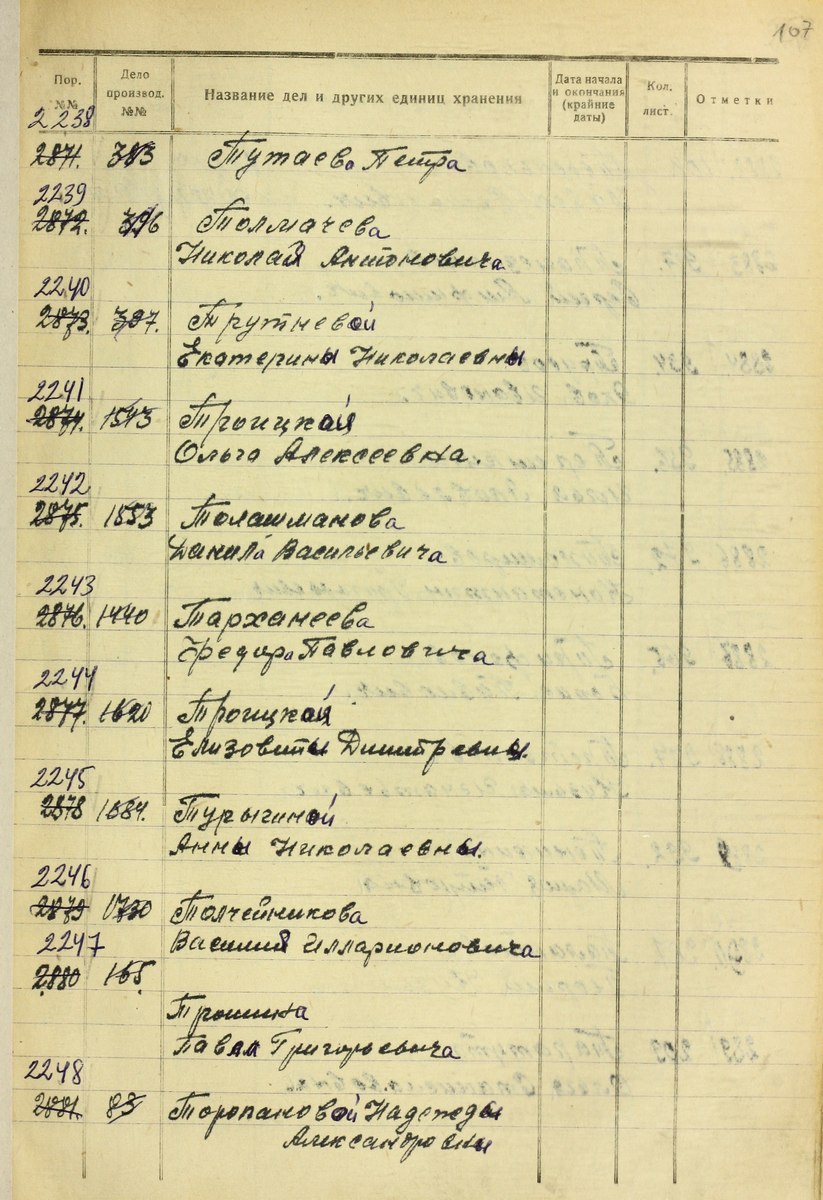 107
Пор. №№ Дело производ. №№ Название дел и других единиц хранения Дата начала и окончания (крайние даты) Кол. лист. Отметки
2238
2871. 383 Тутаева Петра
2239
2872. 396 Толмачева
Николая Антоновича
2240
2873. 397. Трутневой
Екатерины Николаевны
2241
2874. 1543 Троицкой
Ольга Алексеевна.
2242
2875. 1553 Толашманова
Данила Васильевича
2243
2876. 1440 Тарханеева
Федора Павловича
2244
2877. 1620 Троицкой
Елизовиты Димитревны.
2245
2878 1684. Турыгиной
Анны Николаевны.
2246
2879 1730 Толчейникова
2247 Василия Илларионовича
2880 165
Трошина
Павла Григорьевича
2248
2881. 83 Торопановой Надежды
Александровны